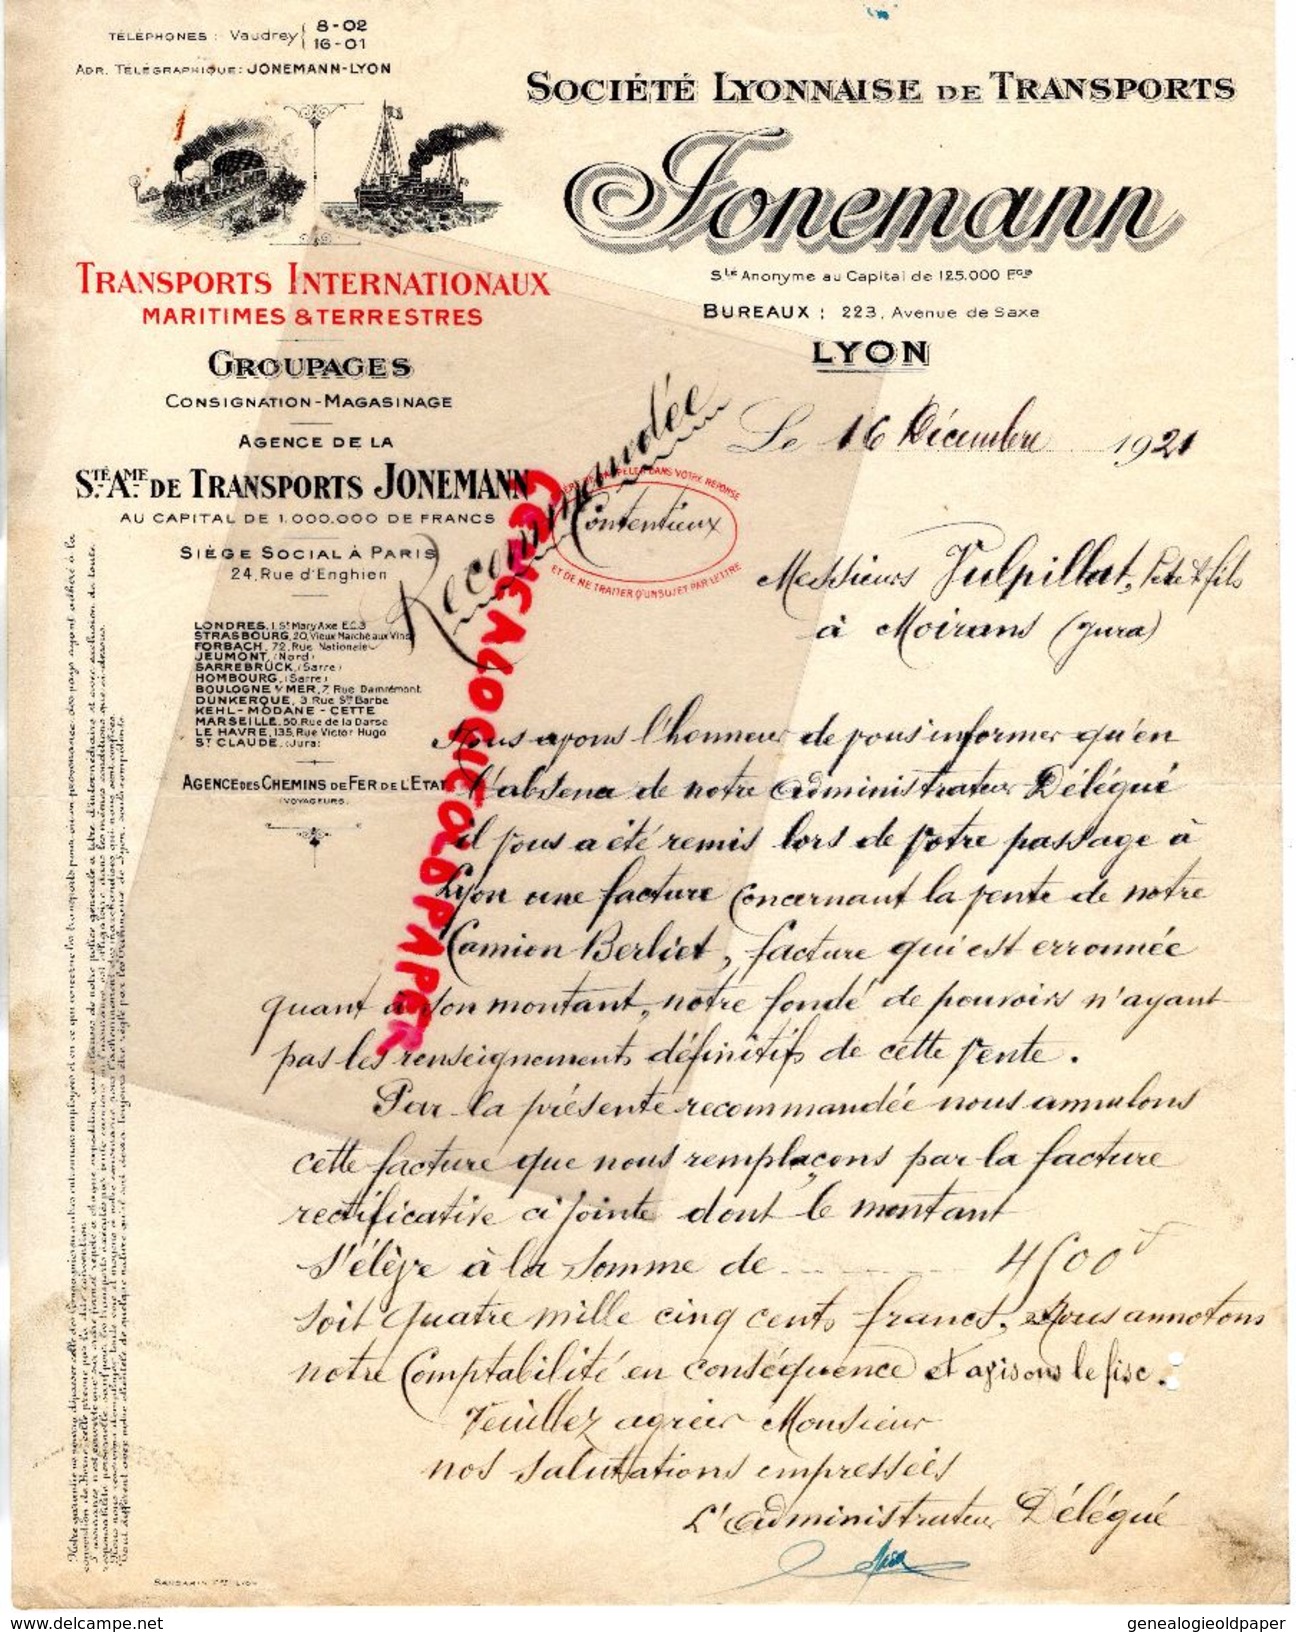 TÉLÉPHONES : Vaudrey { 8-02
16-01
ADR. TÉLÉGRAPHIQUE: JONEMANN-LYON
SOCIÉTÉ LYONNAISE DE TRANSPORTS
Jonemann
Sté Anonyme au Capital de 125.000 Fcs
BUREAUX : 223, Avenue de Saxe
LYON
TRANSPORTS INTERNATIONAUX
MARITIMES & TERRESTRES
GROUPAGES
CONSIGNATION-MAGASINAGE
AGENCE DE LA
STÉ AME DE TRANSPORTS JONEMANN
AU CAPITAL DE 1.000.000 DE FRANCS
SIÈGE SOCIAL À PARIS
24, Rue d'Enghien
LONDRES, 1, St Mary Axe EC3
STRASBOURG, 20, Vieux Marché aux Vins
FORBACH, 72, Rue Nationale
JEUMONT, (Nord)
SARREBRÜCK, (Sarre)
HOMBOURG, (Sarre)
BOULOGNE S/ MER, 7, Rue Damrémont
DUNKERQUE, 3, Rue Ste Barbe
KEHL - MODANE - CETTE
MARSEILLE, 50, Rue de la Darse
LE HAVRE, 135, Rue Victor Hugo
ST CLAUDE, (Jura)
AGENCE DES CHEMINS DE FER DE L'ETAT
(VOYAGEURS)
Recommandée
RAPPELER DANS VOTRE RÉPONSE
Contentieux
ET DE NE TRAITER QU'UN SUJET PAR LETTRE
Le 16 Décembre 1921
Messieurs Vulpillat, Père & fils
à Moirans (Jura)
Nous avons l'honneur de vous informer qu'en
l'absence de notre administrateur Délégué
il vous a été remis lors de votre passage à
Lyon une facture concernant la vente de notre
Camion Berliet, facture qui est erronnée
quant à son montant, notre fondé de pouvoirs n'ayant
pas les renseignements définitifs de cette vente.
Par la présente recommandée nous annulons
cette facture que nous remplaçons par la facture
rectificative ci jointe dont le montant
s'élève à la somme de 4500 f
soit quatre mille cinq cents francs. Nous annotons
notre Comptabilité en conséquence et avisons le fisc.
Veuillez agréer Monsieur
nos salutations empressées
L'administrateur Délégué
GENEALOGIEOLDPAPER
genealogieoldpaper